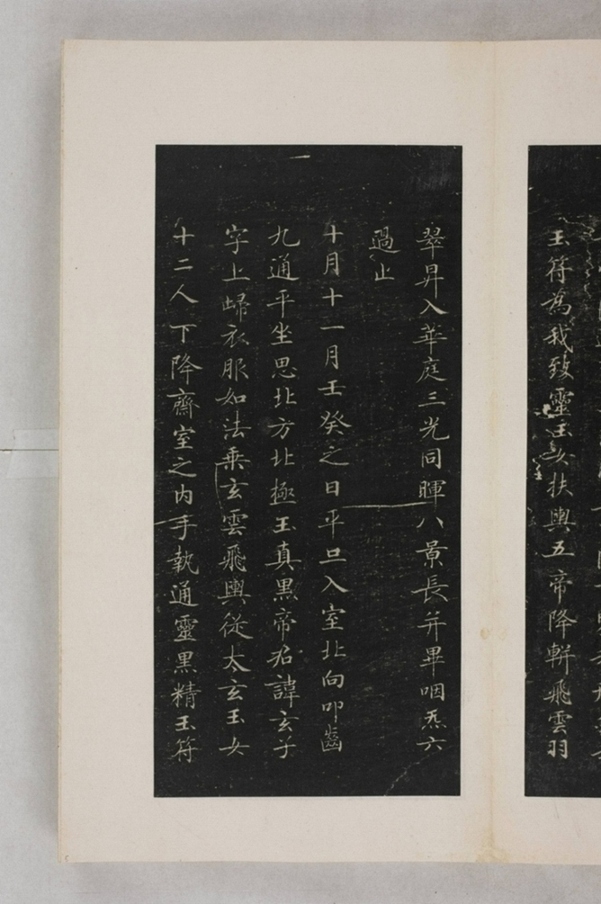 玉符為我致靈玉女扶輿五帝降軿飛雲羽
翠昇入華庭三光同暉八景長并畢咽炁六
過止
十月十一月壬癸之日平旦入室北向叩齒
九通平坐思北方北極玉真黑帝君諱玄子
字上歸衣服如法乘玄雲飛輿從太玄玉女
十二人下降齋室之內手執通靈黑精玉符